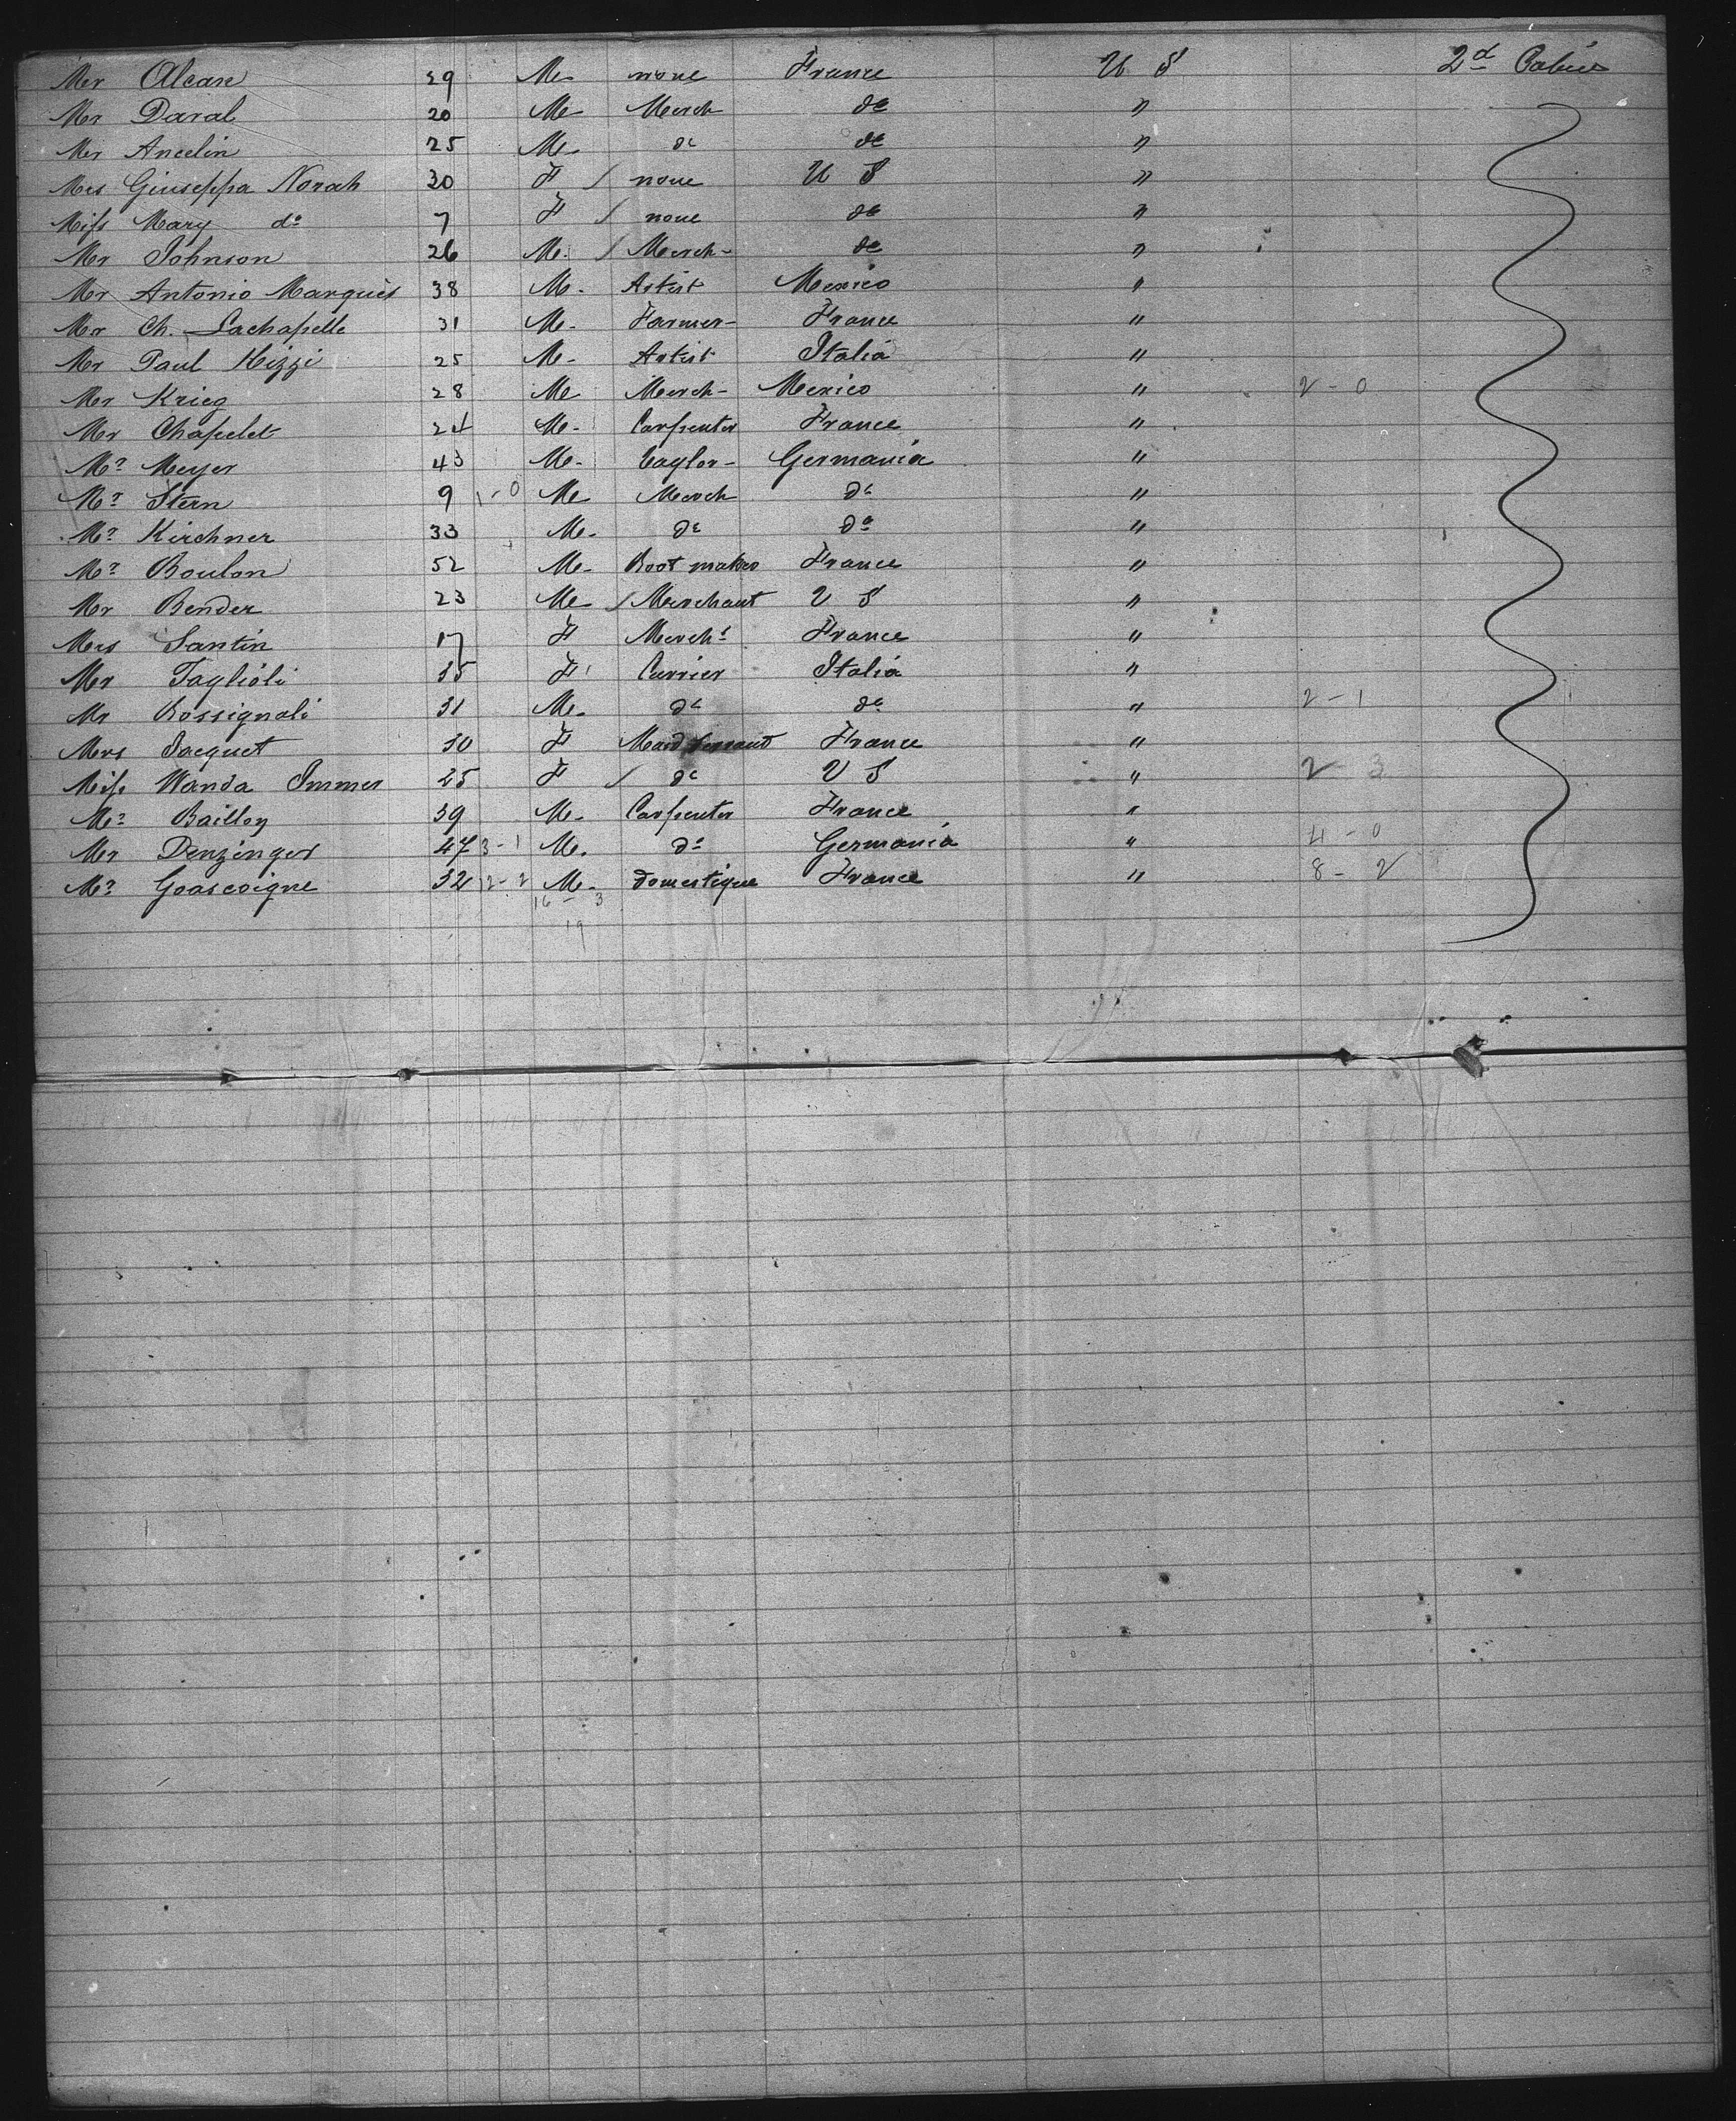 Mr Alcan 29 M none France U S 2d Cabin
Mr Daral 20 M Merch do "
Mr Ancelin 25 M do do "
Mrs Giuseppa Norah 30 F / none U S "
Miss Mary do 7 F / none do "
Mr Johnson 26 M / Merch do "
Mr Antonio Marquès 38 M Artist Mexico "
Mr Ch. Lachapelle 31 M Farmer France "
Mr Paul 25 M Artist Italia "
Mr Krieg 28 M Merch Mexico " 2-0
Mr Chapelet 24 M Carpenter France "
Mr Meyer 43 M taylor Germania "
Mr Stern 9 1-0 M Merch do "
Mr Kirchner 33 M do do "
Mr Boulon 52 M Boot maker France "
Mr Bender 23 M / Merchant U S "
Mrs Santin 17 F Mercht France "
Mr Taglioli 35 F Currier Italia "
Mr Rossignoli 31 M do do " 2-1
Mrs Jacquet 30 F Maid servant France "
Miss Wanda Immer 25 F / do U S " 2 3
Mr Baillon 39 M Carpenter France "
Mr Denzinger 47 3-1 M do Germania " 4-0
Mr Goascoigne 32 2-2 M domestique France " 8-2
16-3
19